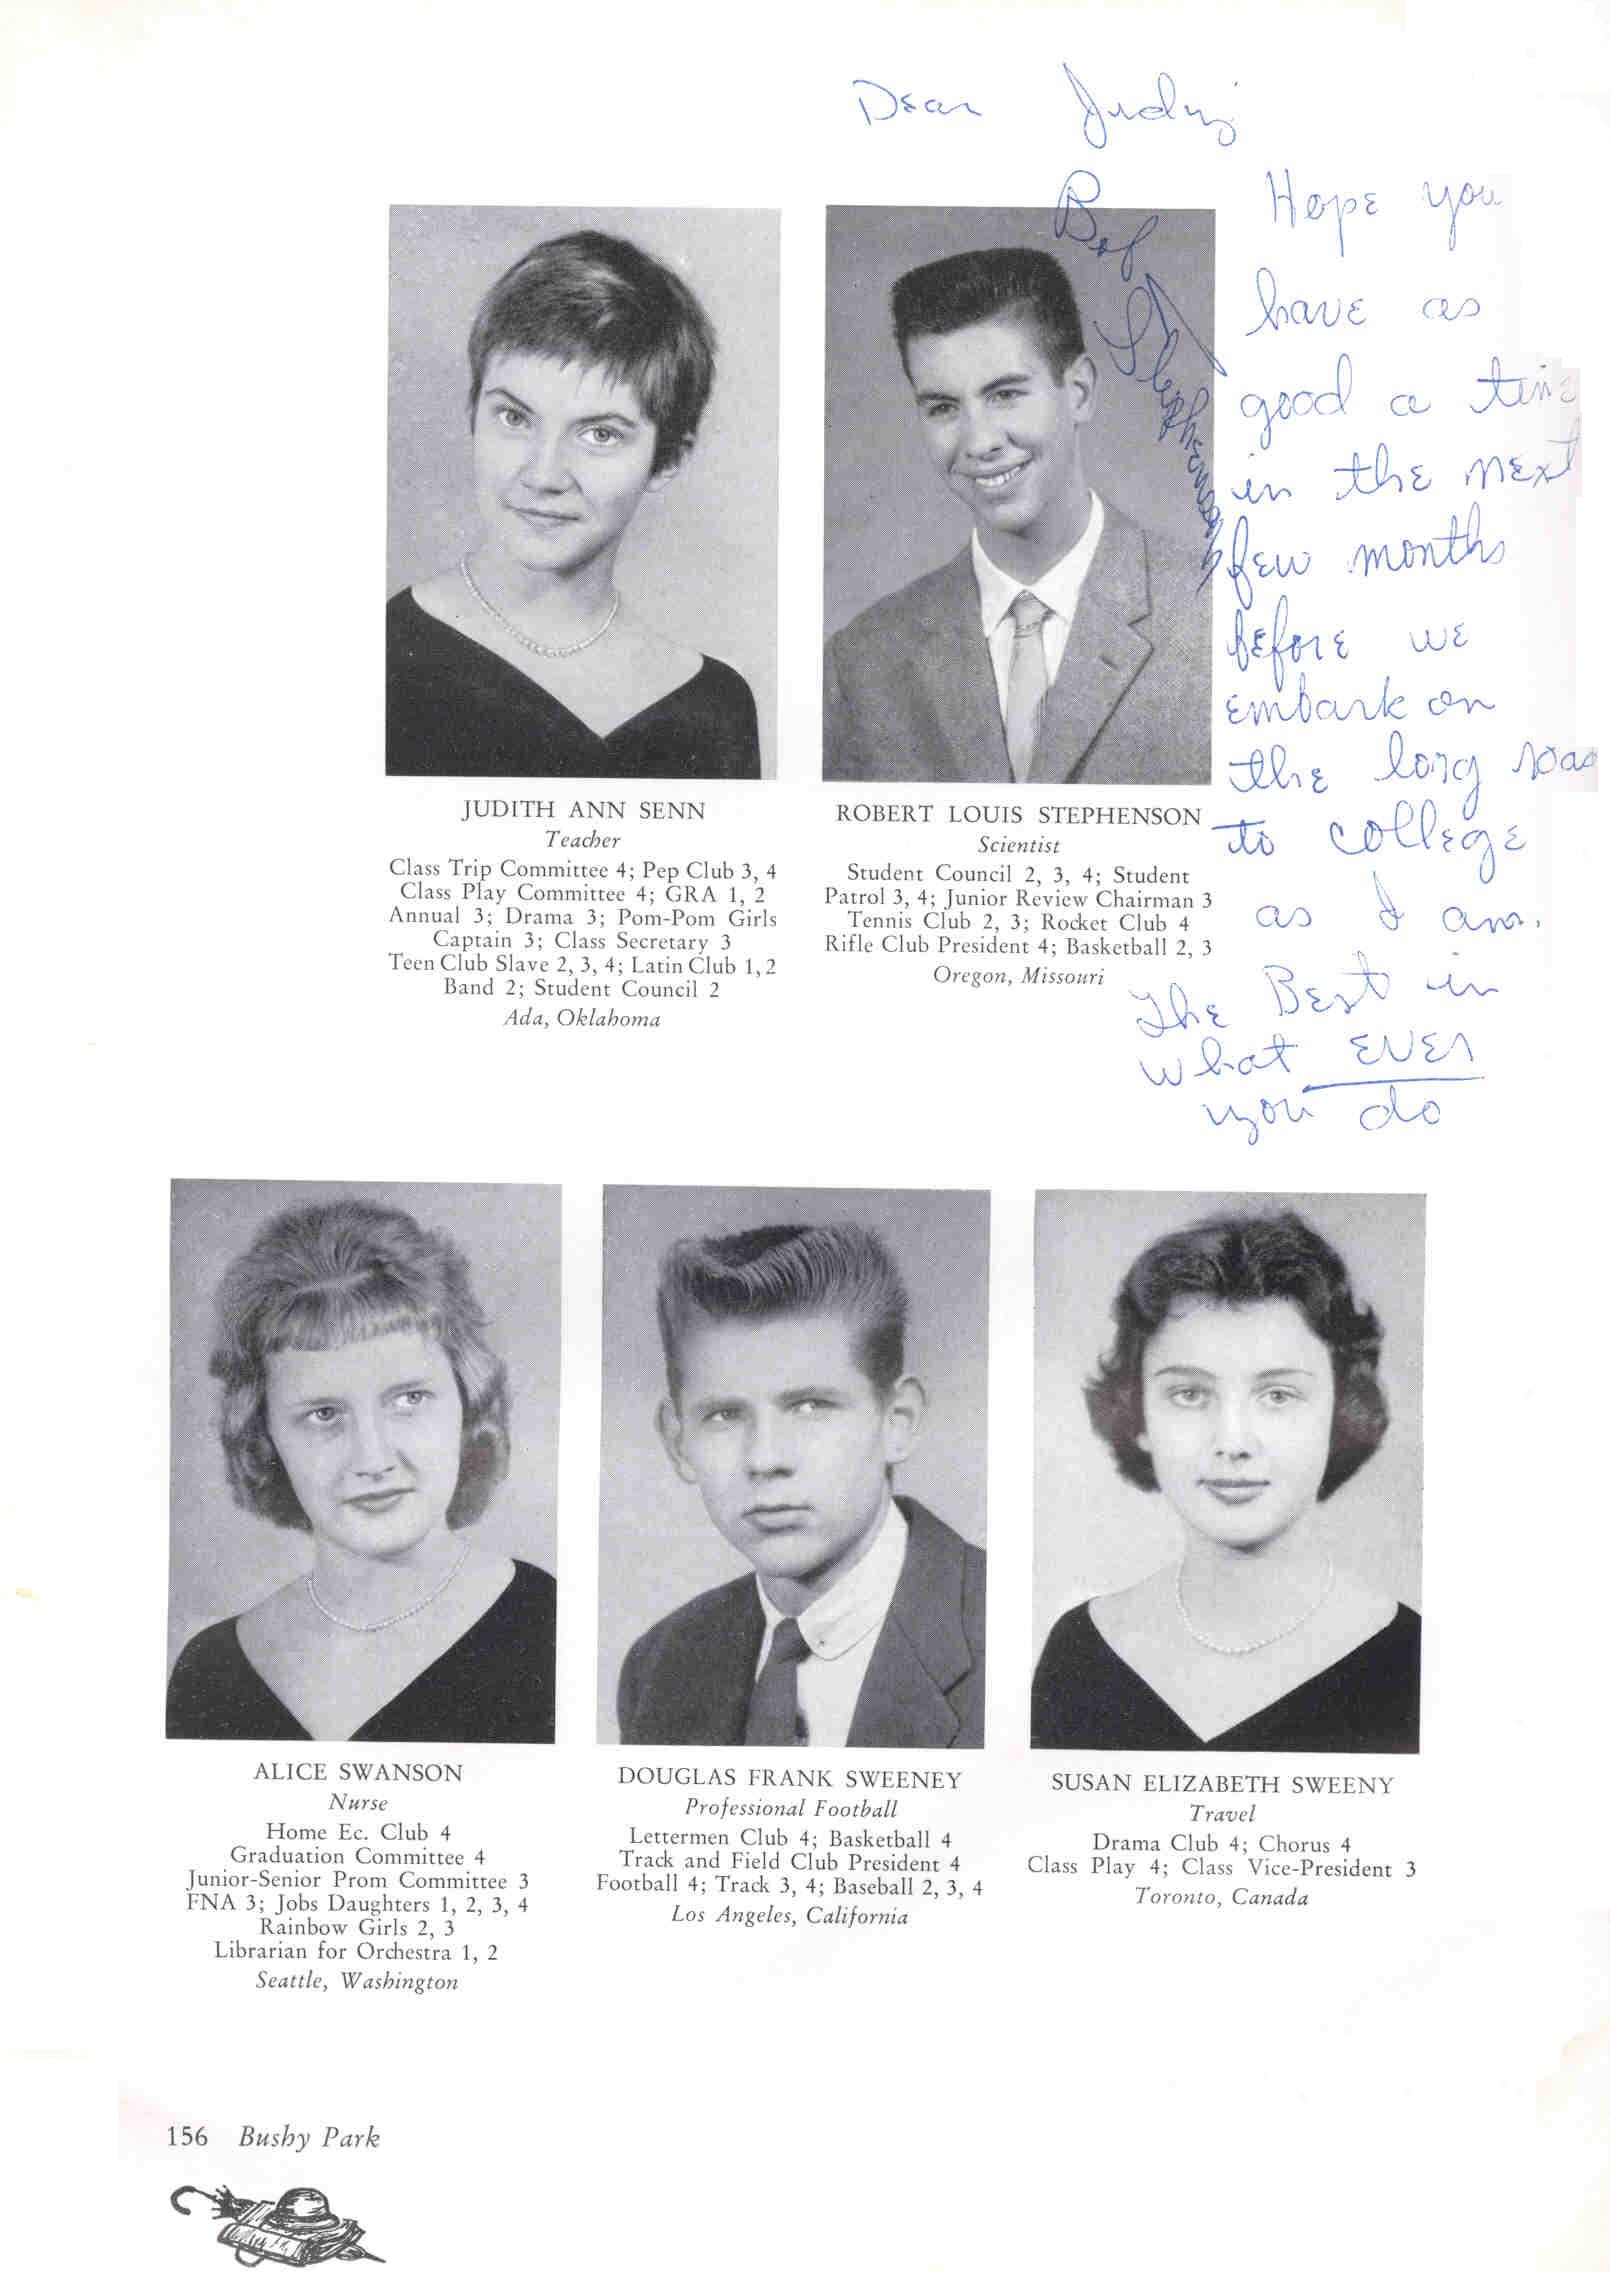 Dear Judy
Hope you
have as
good a time
in the next
few months
before we
embark on
the long road
to college
as I am.
The Best in
what ever
you do
Bob Stephenson
JUDITH ANN SENN
Teacher
Class Trip Committee 4; Pep Club 3, 4
Class Play Committee 4; GRA 1, 2
Annual 3; Drama 3; Pom-Pom Girls
Captain 3; Class Secretary 3
Teen Club Slave 2, 3, 4; Latin Club 1, 2
Band 2; Student Council 2
Ada, Oklahoma
ROBERT LOUIS STEPHENSON
Scientist
Student Council 2, 3, 4; Student
Patrol 3, 4; Junior Review Chairman 3
Tennis Club 2, 3; Rocket Club 4
Rifle Club President 4; Basketball 2, 3
Oregon, Missouri
ALICE SWANSON
Nurse
Home Ec. Club 4
Graduation Committee 4
Junior-Senior Prom Committee 3
FNA 3; Jobs Daughters 1, 2, 3, 4
Rainbow Girls 2, 3
Librarian for Orchestra 1, 2
Seattle, Washington
DOUGLAS FRANK SWEENEY
Professional Football
Lettermen Club 4; Basketball 4
Track and Field Club President 4
Football 4; Track 3, 4; Baseball 2, 3, 4
Los Angeles, California
SUSAN ELIZABETH SWEENY
Travel
Drama Club 4; Chorus 4
Class Play 4; Class Vice-President 3
Toronto, Canada
156 Bushy Park